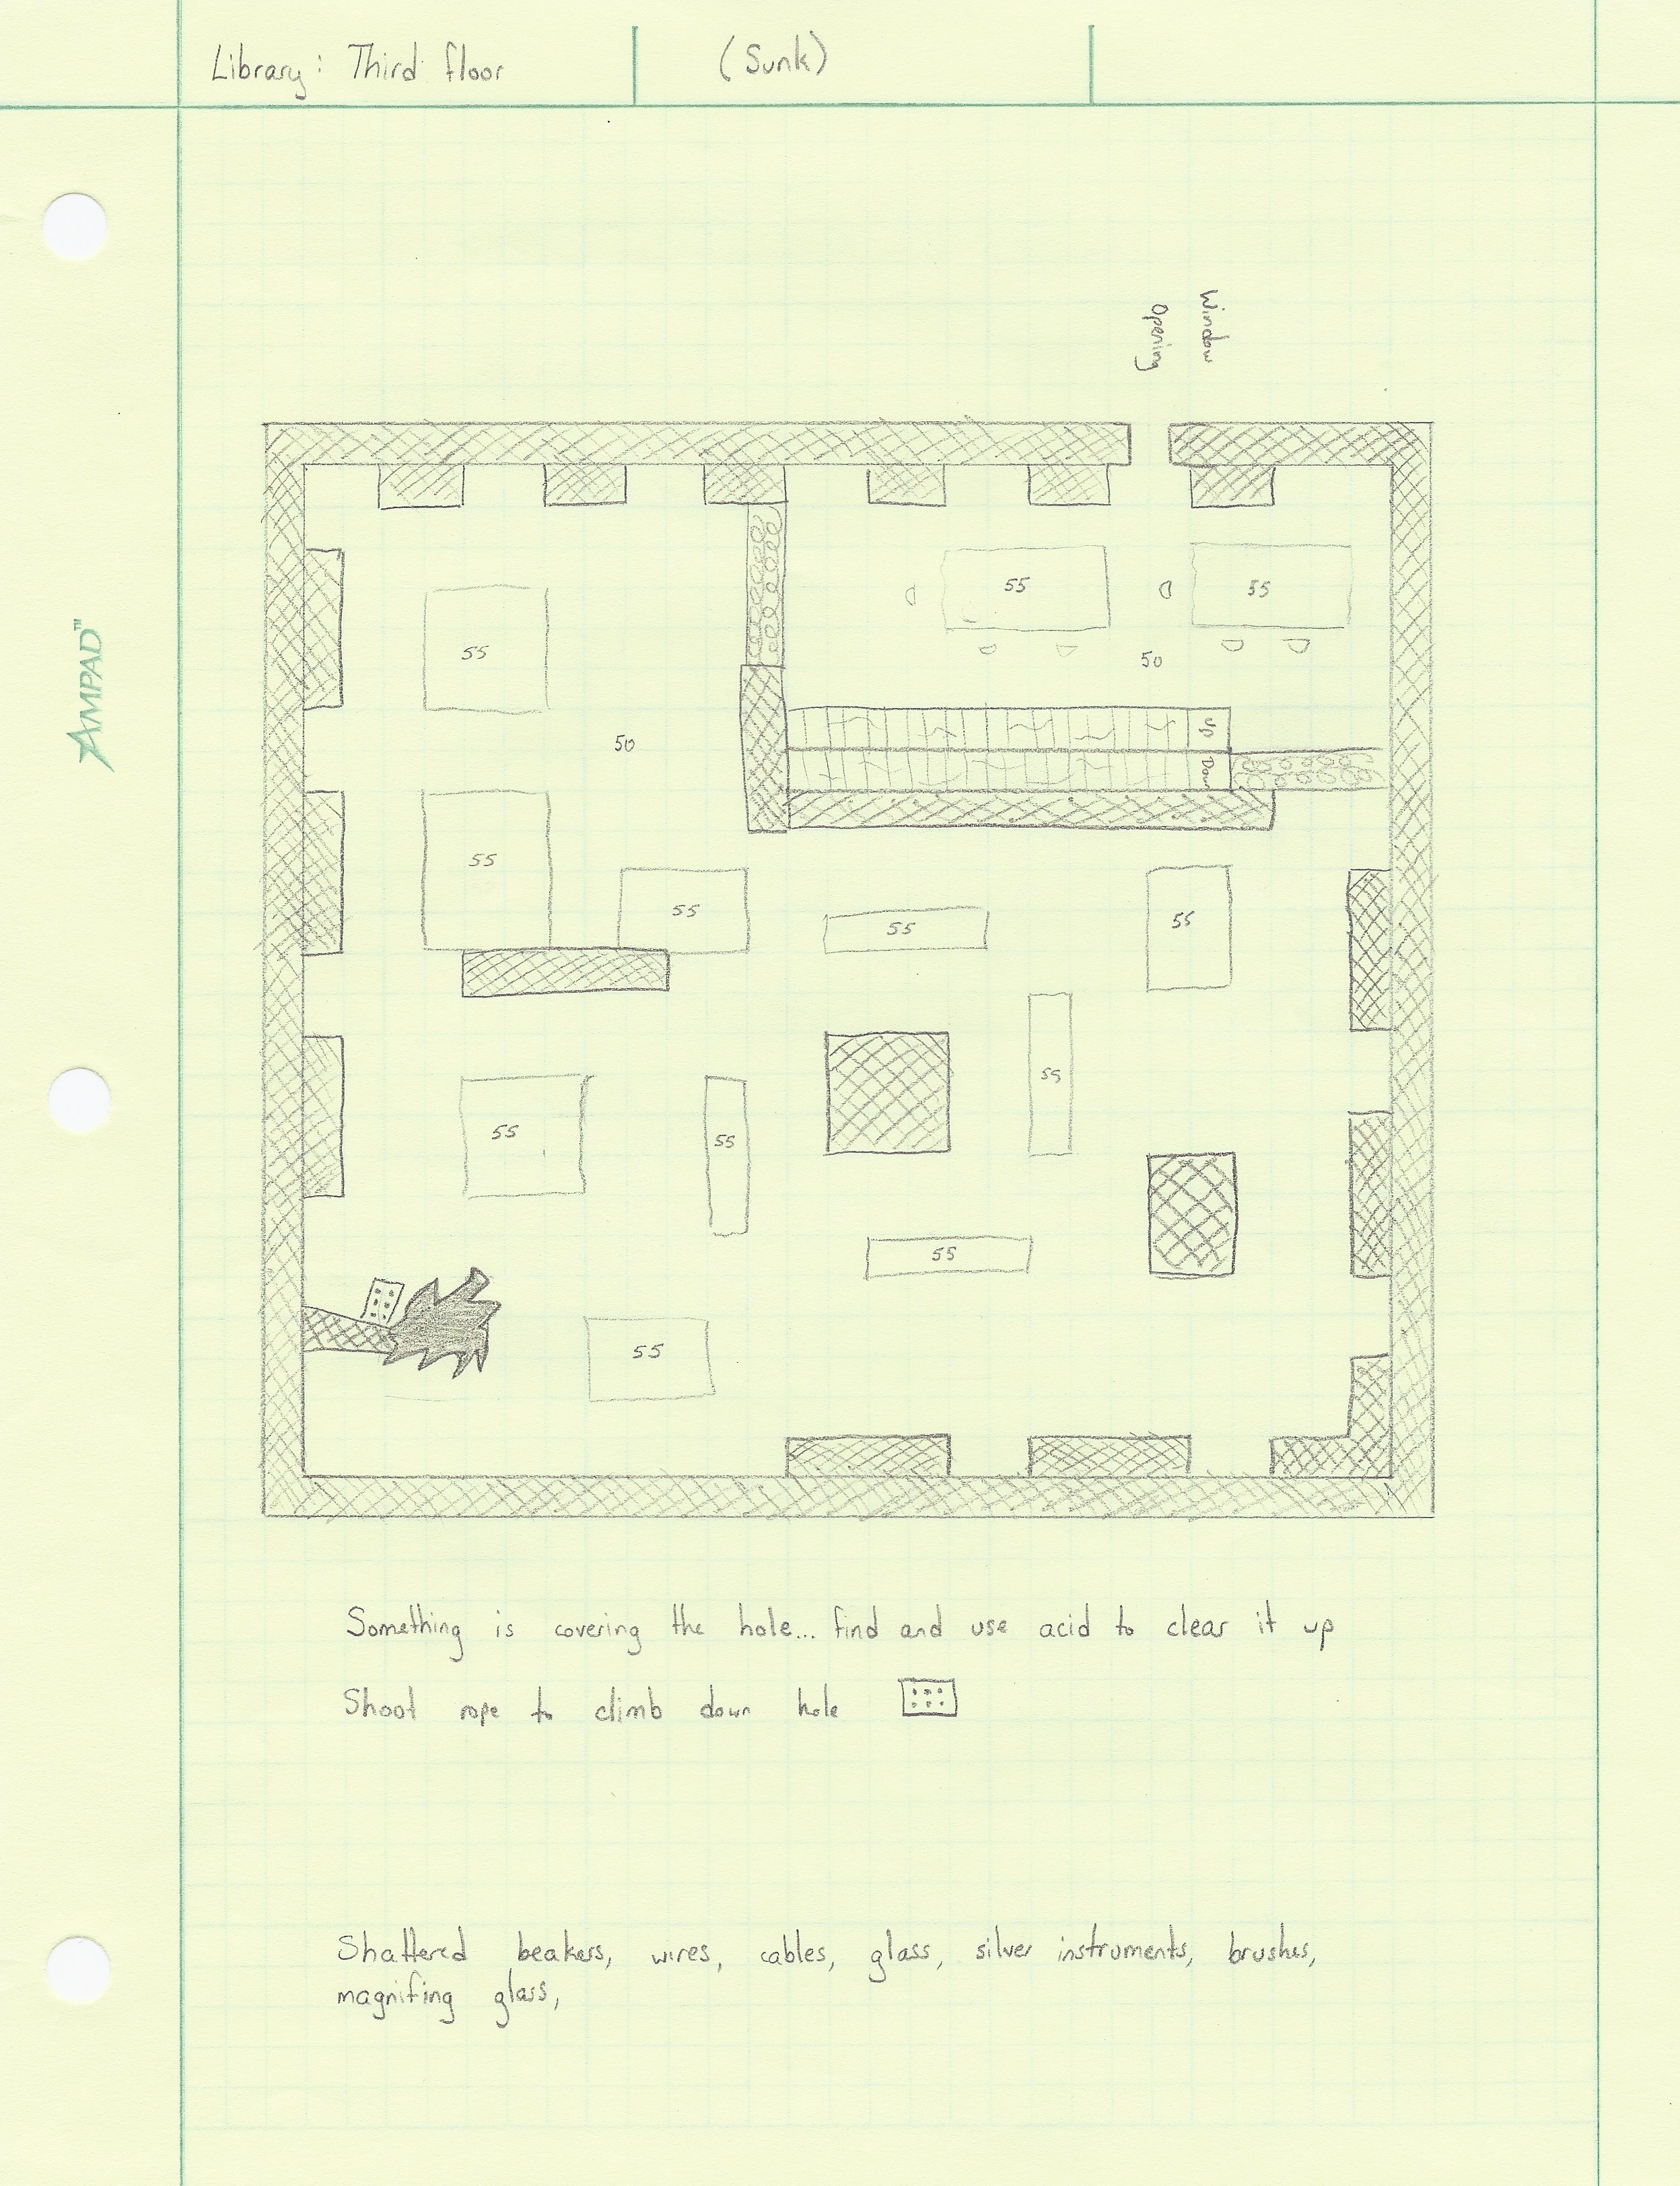 Library: Third floor (Sunk)
Window
Opening
55 55
55
50
50
Up
Down
55
55
55
55
55
55
55
55
55
Something is covering the hole... find and use acid to clear it up
Shoot rope to climb down hole
Shattered beakers, wires, cables, glass, silver instruments, brushes,
magnifing glass,
AMPAD™